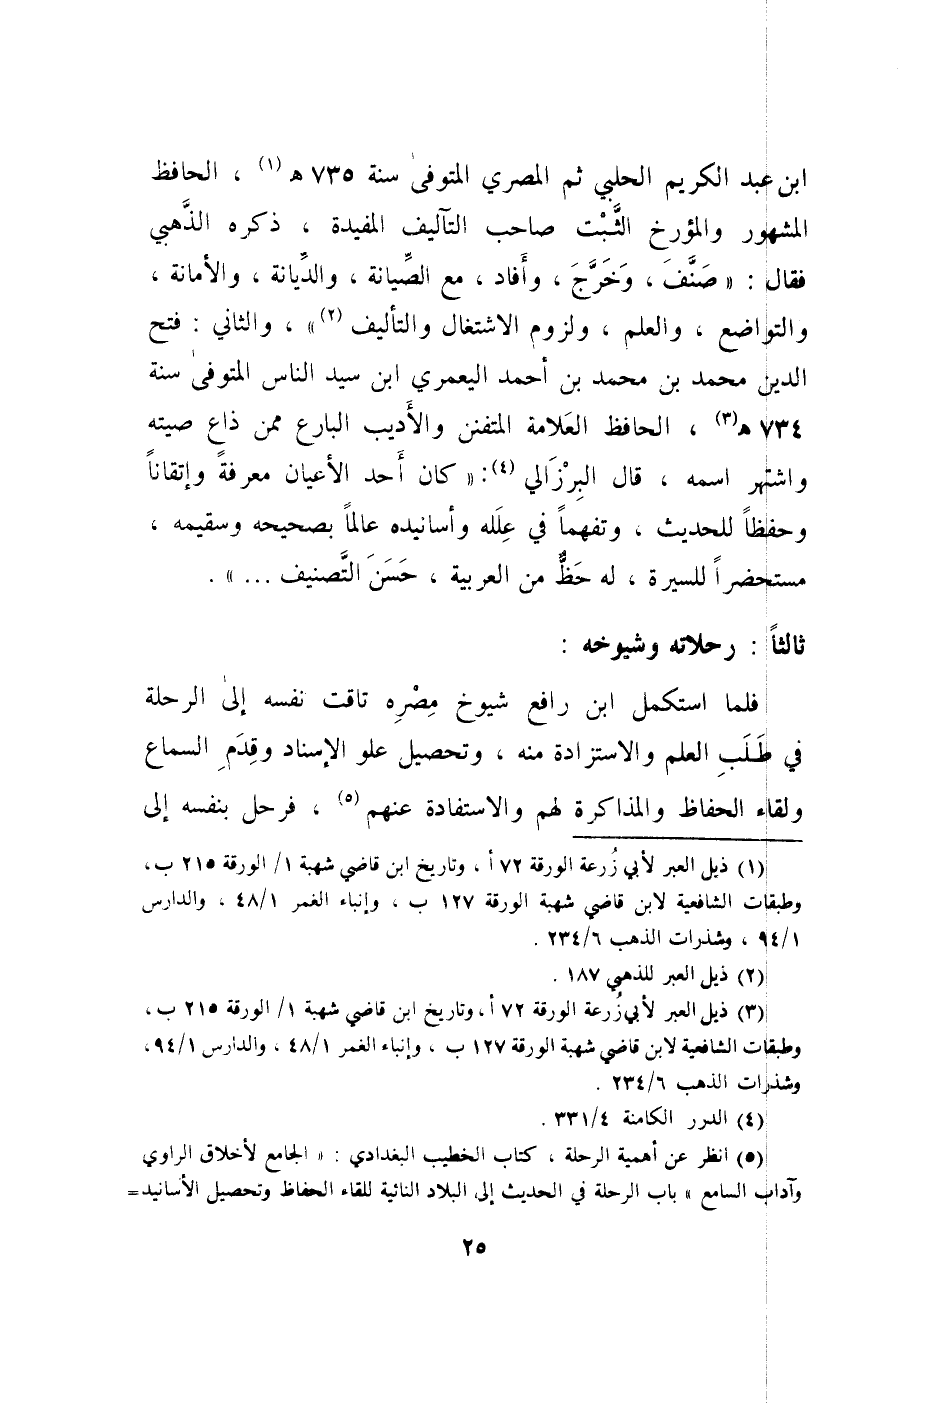 ابن عبد الكريم الحلبي ثم المصري المتوفىٰ سنة ٧٣٥ هـ (١) ، الحافظ
المشهور والمؤرخ الثَّبْت صاحب التآليف المفيدة ، ذكره الذَّهبي
فقال : « صَنَّفَ ، وَخَرَّجَ ، وأَفاد ، مع الصِّيانة ، والدِّيانة ، والأمانة ،
والتواضع ، والعلم ، ولزوم الاشتغال والتأليف (٢) » ، والثاني : فتح
الدين محمد بن محمد بن أحمد اليعمري ابن سيد الناس المتوفىٰ سنة
٧٣٤ هـ(٣) ، الحافظ العَلامة المتفنن والأَديب البارع ممن ذاع صيته
واشتهر اسمه ، قال البِرْزَالي (٤): « كان أَحد الأعيان معرفةً وإتقاناً
وحفظاً للحديث ، وتفهماً في عِلَله وأسانيده عالماً بصحيحه وسقيمه ،
مستحضراً للسيرة ، له حَظٌّ من العربية ، حَسَنَ التَّصنيف ... » .
ثالثاً : رحلاته وشيوخه :
فلما استكمل ابن رافع شيوخ مِصْرِه تاقت نفسه إلىٰ الرحلة
في طَلَبِ العلم والاستزادة منه ، وتحصيل علو الإسناد وقِدَمِ السماع
ولقاء الحفاظ والمذاكرة لهم والاستفادة عنهم (٥) ، فرحل بنفسه إلى
(١) ذيل العبر لأبي زُرعة الورقة ٧٢ أ ، وتاريخ ابن قاضي شهبة ١/ الورقة ٢١٥ ب،
وطبقات الشافعية لابن قاضي شهبة الورقة ١٢٧ ب ، وإنباء الغمر ٤٨/١ ، والدارس
٩٤/١ ، وشذرات الذهب ٢٣٤/٦ .
(٢) ذيل العبر للذهبي ١٨٧ .
(٣) ذيل العبر لأبي زُرعة الورقة ٧٢ أ، وتاريخ ابن قاضي شهبة ١/ الورقة ٢١٥ ب،
وطبقات الشافعية لابن قاضي شهبة الورقة ١٢٧ ب ، وإنباء الغمر ٤٨/١ ، والدارس ٩٤/١،
وشذرات الذهب ٢٣٤/٦ .
(٤) الدرر الكامنة ٣٣١/٤ .
(٥) انظر عن أهمية الرحلة ، كتاب الخطيب البغدادي : « الجامع لأخلاق الراوي
وآداب السامع » باب الرحلة في الحديث إلى البلاد النائية للقاء الحفاظ وتحصيل الأسانيد=
٢٥